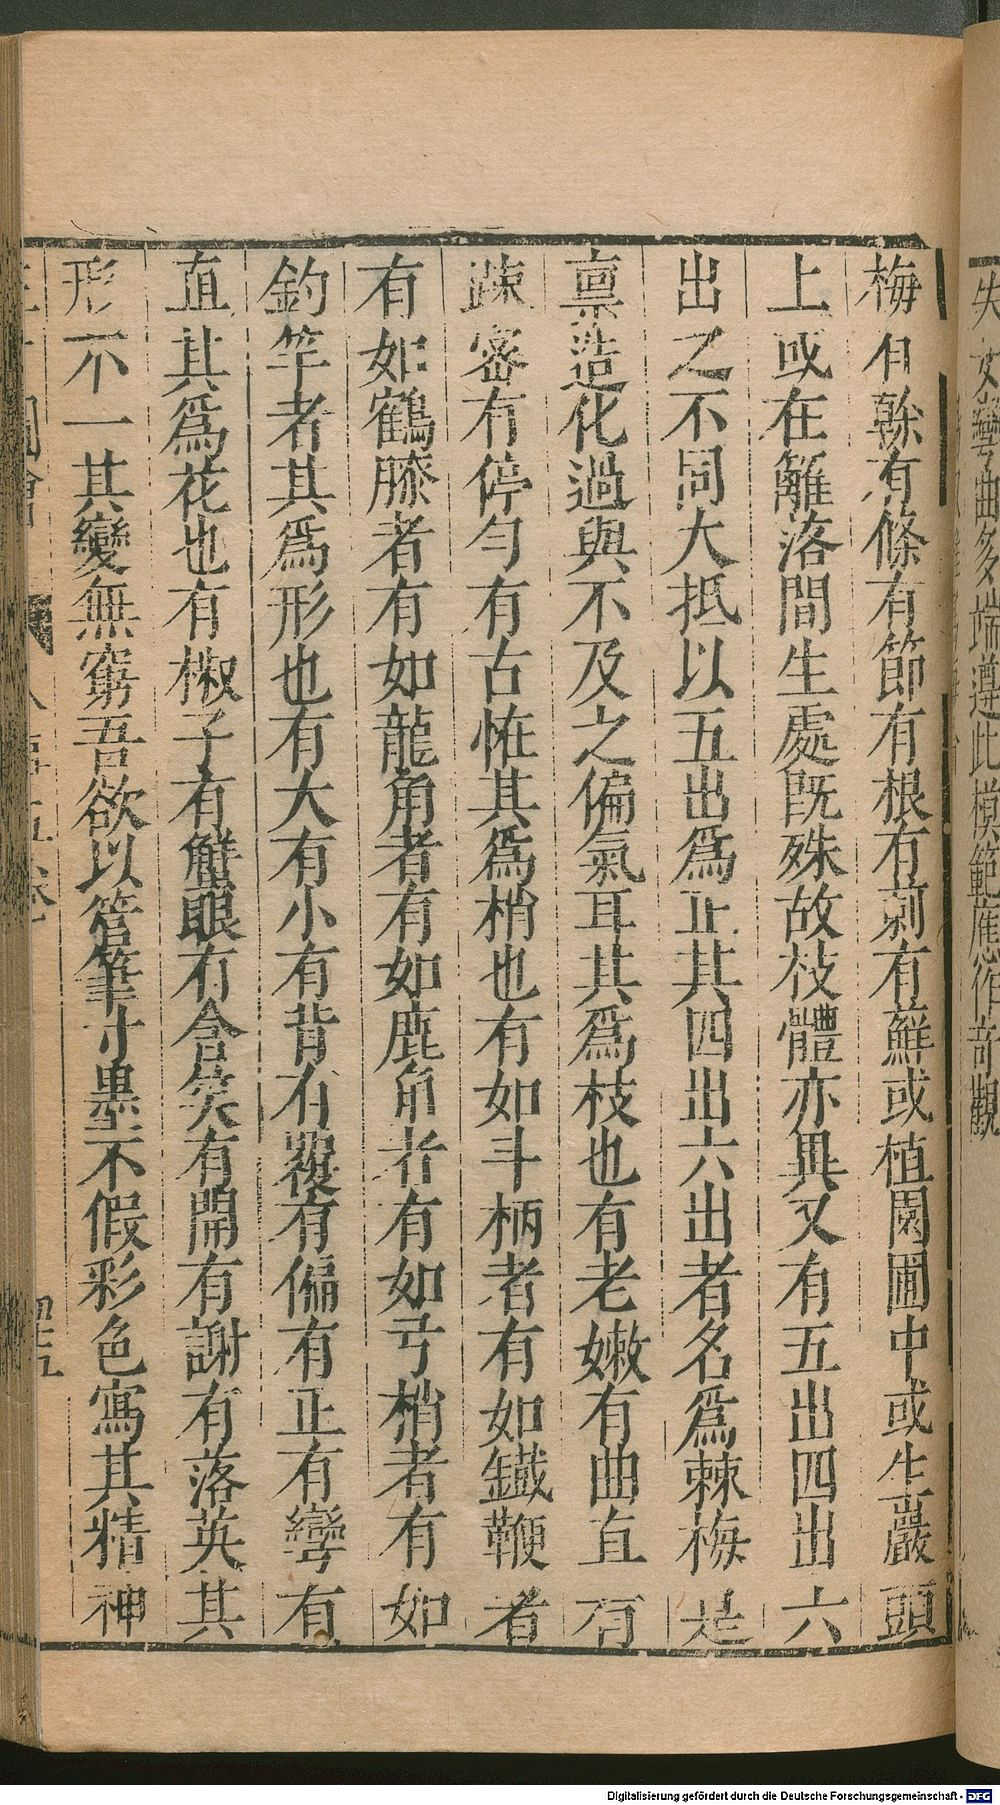 梅有幹有條有節有根有刺有蘚或植園圃中或生巖頭
上或在籬落間生處既殊故枝體亦異又有五出四出六
出之不同大抵以五出爲正其四出六出者名爲棘梅是
禀造化過與不及之偏氣耳其爲枝也有老嫩有曲直有
踈密有停勻有古恠其爲梢也有如斗柄者有如鐵鞭者
有如鶴膝者有如龍角者有如鹿角者有如弓梢者有如
釣竿者其爲形也有大有小有背有覆有偏有正有彎有
直其爲花也有椒子有蟹眼有含笑有開有謝有落英其
形不一其變無窮吾欲以管筆寸墨不假彩色寫其精神
曲多端遵此模範應作奇觀
Digitalisierung gefördert durch die Deutsche Forschungsgemeinschaft - DFG